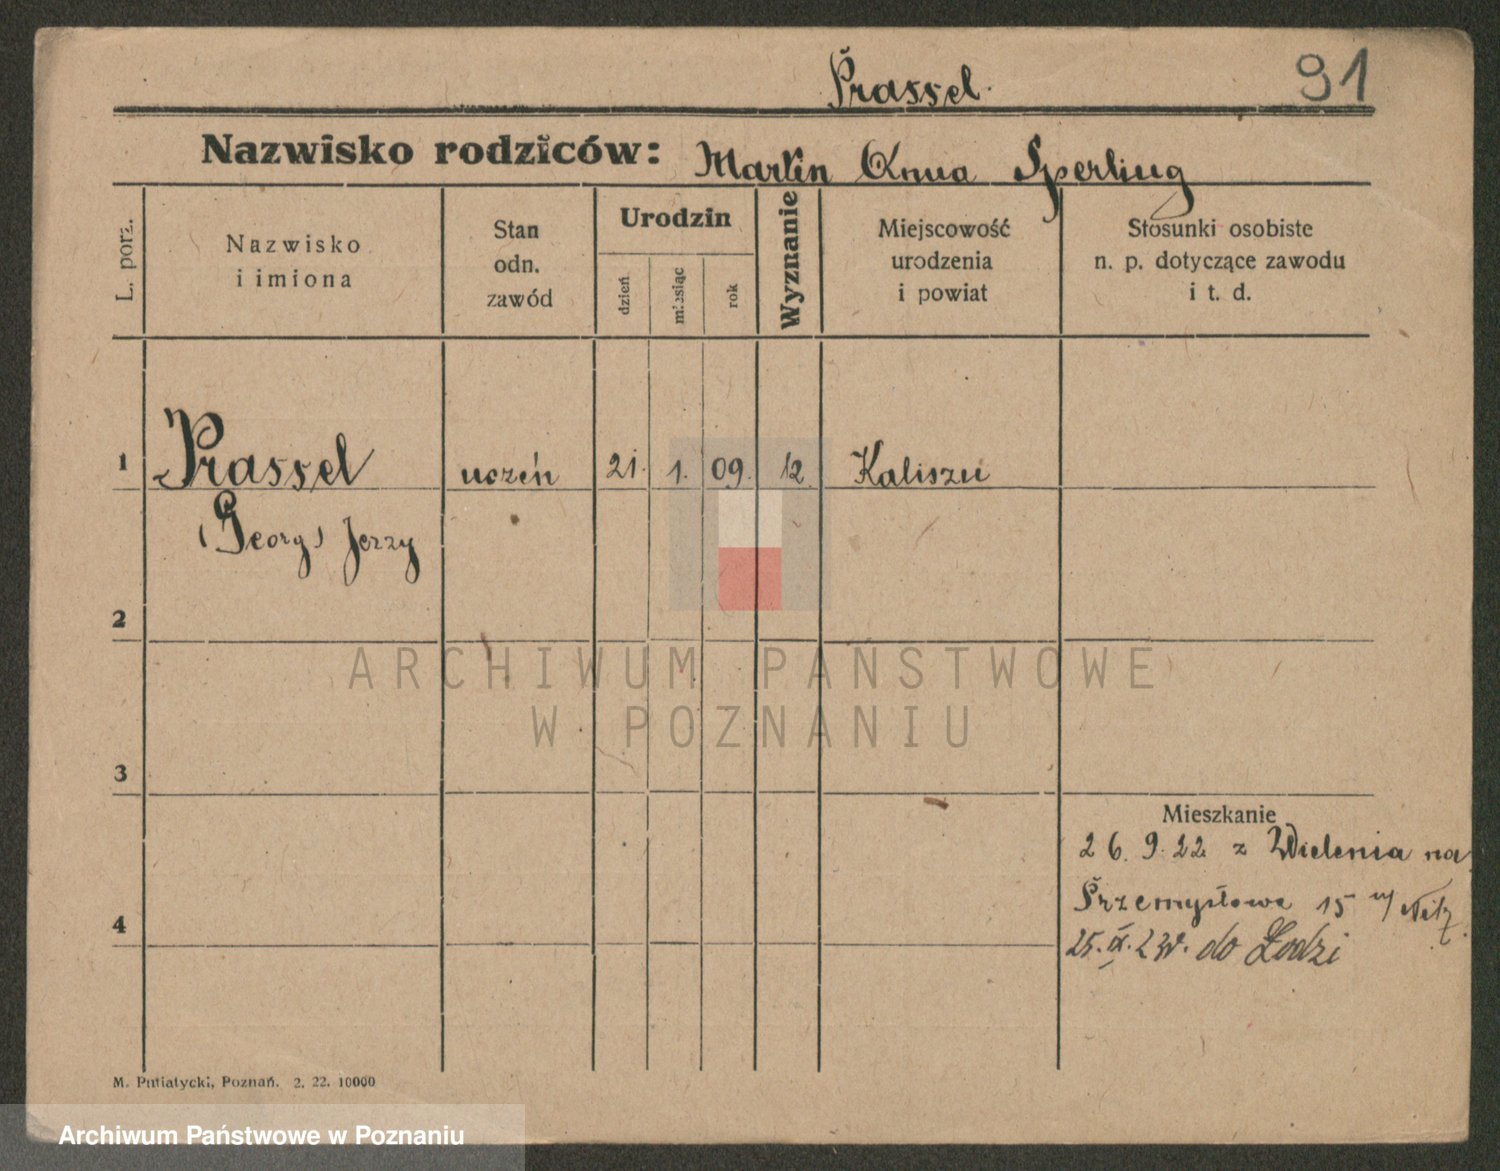 Prassel
91
Nazwisko rodziców: Martin Anna Sperling
L. porz.
Nazwisko
i imiona
Stan
odn.
zawód
Urodzin
dzień
miesiąc
rok
Wyznanie
Miejscowość
urodzenia
i powiat
Stosunki osobiste
n. p. dotyczące zawodu
i t. d.
1 Prassel uczeń 21. 1. 09. Kaliszu
(Georg) Jerzy
2
ARCHIWUM PAŃSTWOWE
W POZNANIU
3
Mieszkanie
26. 9. 22 z Wielenia na
Przemysłowa 15
4
25. IX. do Łodzi
M. Putiatycki, Poznań. 2. 22. 10000
Archiwum Państwowe w Poznaniu